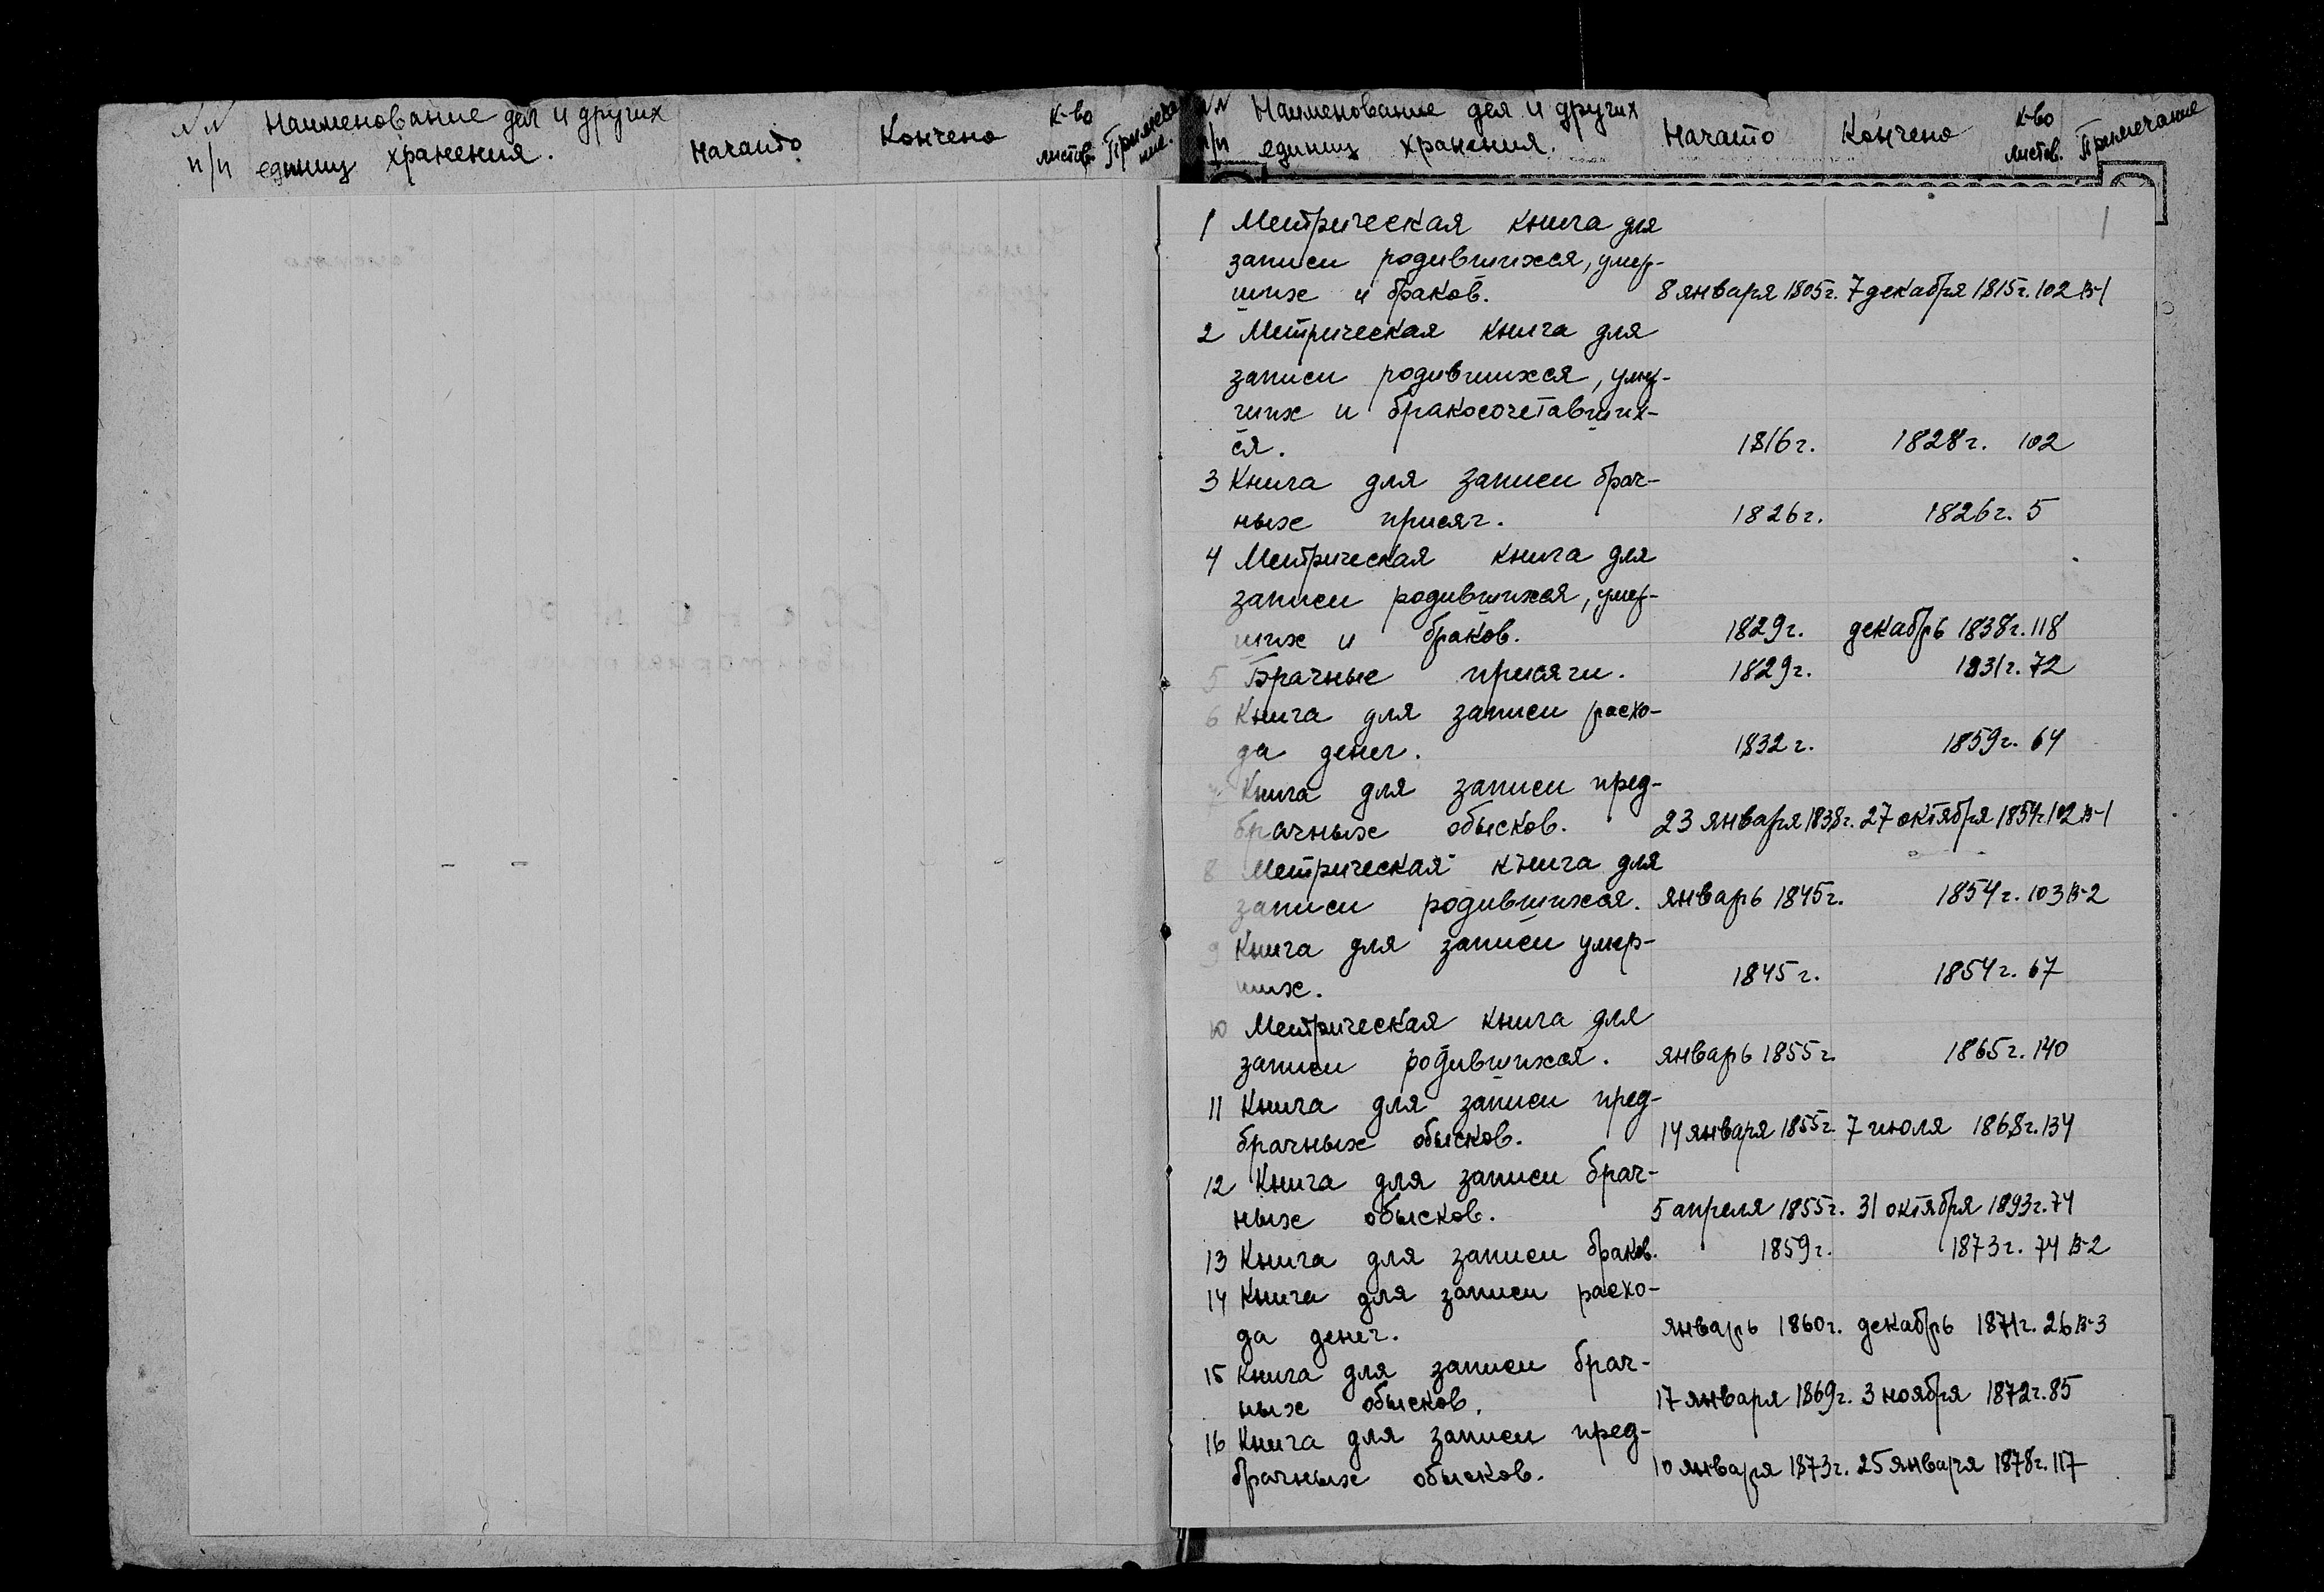 NN Наименование дел и других
п/п единиц хранения. Начато Кончено К-во листов Примечание.
NN Наименование дел и других
п/п единиц хранения. Начато Кончено К-во листов. Примечание
1
1 Метрическая книга для
записи родившихся, умер-
ших и браков. 8 января 1805г. 7 декабря 1815г. 102 В-1
2 Метрическая книга для
записи родившихся, умер-
ших и бракосочетавших-
ся. 1816г. 1828г. 102
3 Книга для записи брач-
ных присяг. 1826г. 1826г. 5
4 Метрическая книга для
записи родившихся, умер-
ших и браков. 1829г. декабрь 1838г. 118
5 Брачные присяги. 1829г. 1831г. 72
6 Книга для записи расхо-
да денег. 1832г. 1859г. 64
7 Книга для записи пред-
брачных обысков. 23 января 1838г. 27 октября 1854г. 102 В-1
8 Метрическая книга для
записи родившихся. январь 1845г. 1854г. 103 В-2
9 Книга для записи умер-
ших. 1845г. 1854г. 67
10 Метрическая книга для
записи родившихся. январь 1855г. 1865г. 140
11 Книга для записи пред-
брачных обысков. 14 января 1855г. 7 июля 1868г. 134
12 Книга для записи брач-
ных обысков. 5 апреля 1855г. 31 октября 1893г. 74
13 Книга для записи браков. 1859г. 1873г. 74 В-2
14 Книга для записи расхо-
да денег. январь 1860г. декабрь 1871г. 26 В-3
15 Книга для записи брач-
ных обысков. 17 января 1869г. 3 ноября 1872г. 85
16 Книга для записи пред-
брачных обысков. 10 января 1873г. 25 января 1878г. 117